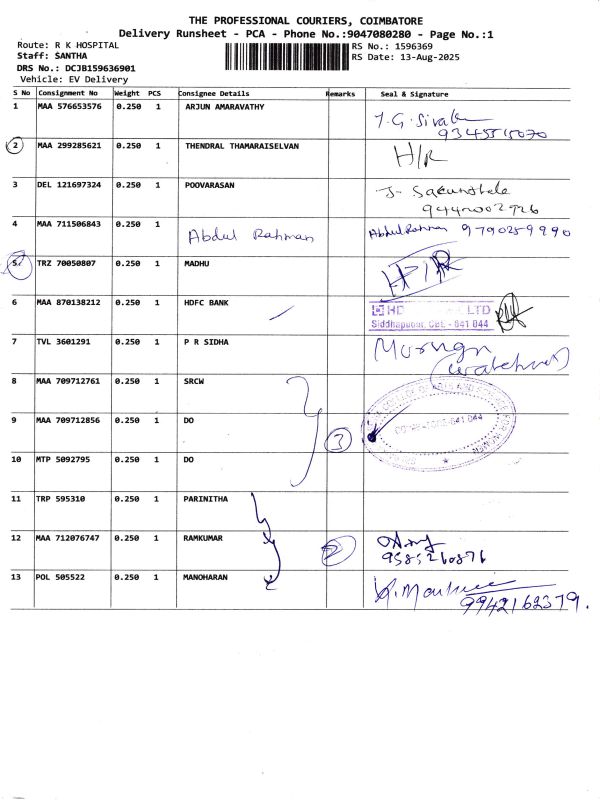 THE PROFESSIONAL COURIERS, COIMBATORE
Delivery Runsheet - PCA - Phone No.:9047080280 - Page No.:1
Route: R K HOSPITAL
RS No.: 1596369
Staff: SANTHA
RS Date: 13-Aug-2025
DRS No.: DCJB159636901
Vehicle: EV Delivery
S No Consignment No Weight PCS Consignee Details Remarks Seal & Signature
1 MAA 576653576 0.250 1 ARJUN AMARAVATHY
9345515070
2 MAA 299285621 0.250 1 THENDRAL THAMARAISELVAN H/R
3 DEL 121697324 0.250 1 POOVARASAN
9442002926
4 MAA 711506843 0.250 1 Abdul Rahman Abdul Rahman 9790259990
5 TRZ 70050807 0.250 1 MADHU
6 MAA 870138212 0.250 1 HDFC BANK
HD LTD
Siddhapudur, CBE - 641 044
7 TVL 3601291 0.250 1 P R SIDHA
8 MAA 709712761 0.250 1 SRCW
9 MAA 709712856 0.250 1 DO
3
10 MTP 5092795 0.250 1 DO
11 TRP 595310 0.250 1 PARINITHA
12 MAA 712076747 0.250 1 RAMKUMAR 2
9585260876
13 POL 505522 0.250 1 MANOHARAN
9942162379.